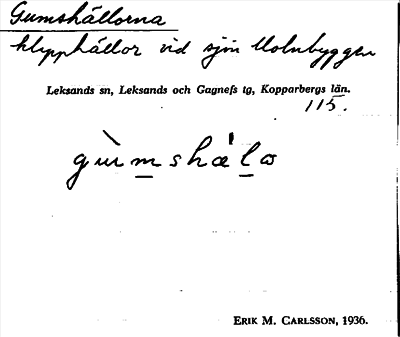 Gumshällorna
klipphällor vid sjön Molnbyggen
Leksands sn, Leksands och Gagnefs tg, Kopparbergs län.
115.
gùmshä̀lo
ERIK M. CARLSSON, 1936.